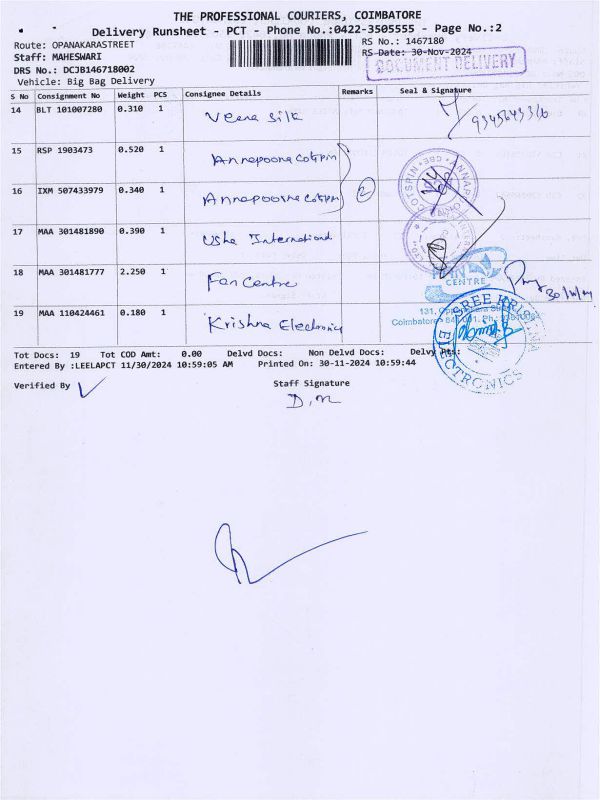 THE PROFESSIONAL COURIERS, COIMBATORE
Delivery Runsheet - PCT - Phone No.:0422-3505555 - Page No.:2
Route: OPANAKARASTREET
RS No.: 1467180
Staff: MAHESWARI
RS Date: 30-Nov-2024
DRS No.: DCJB146718002
DOCUMENT DELIVERY
Vehicle: Big Bag Delivery
S No Consignment No Weight PCS Consignee Details Remarks Seal & Signature
14 BLT 101007280 0.310 1 Veena Silk
15 RSP 1903473 0.520 1 Annapoorna Cotspin
16 IXM 507433979 0.340 1 Annapoorna Cotspin 2
17 MAA 301481890 0.390 1 Usha International
18 MAA 301481777 2.250 1 Fan Centre
CENTRE
19 MAA 110424461 0.180 1 Krishna Electronics
SREE KRISHNA ELECTRONICS
Tot Docs: 19 Tot COD Amt: 0.00 Delvd Docs: Non Delvd Docs: Delvy Pts:
Entered By :LEELAPCT 11/30/2024 10:59:05 AM Printed On: 30-11-2024 10:59:44
Verified By
Staff Signature
D.M